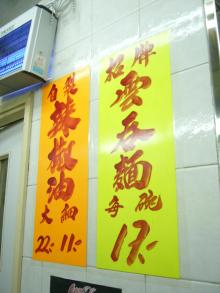 自製
辣椒油
大 細
22.- 11.-
招牌
雲吞麵
每碗
17.-